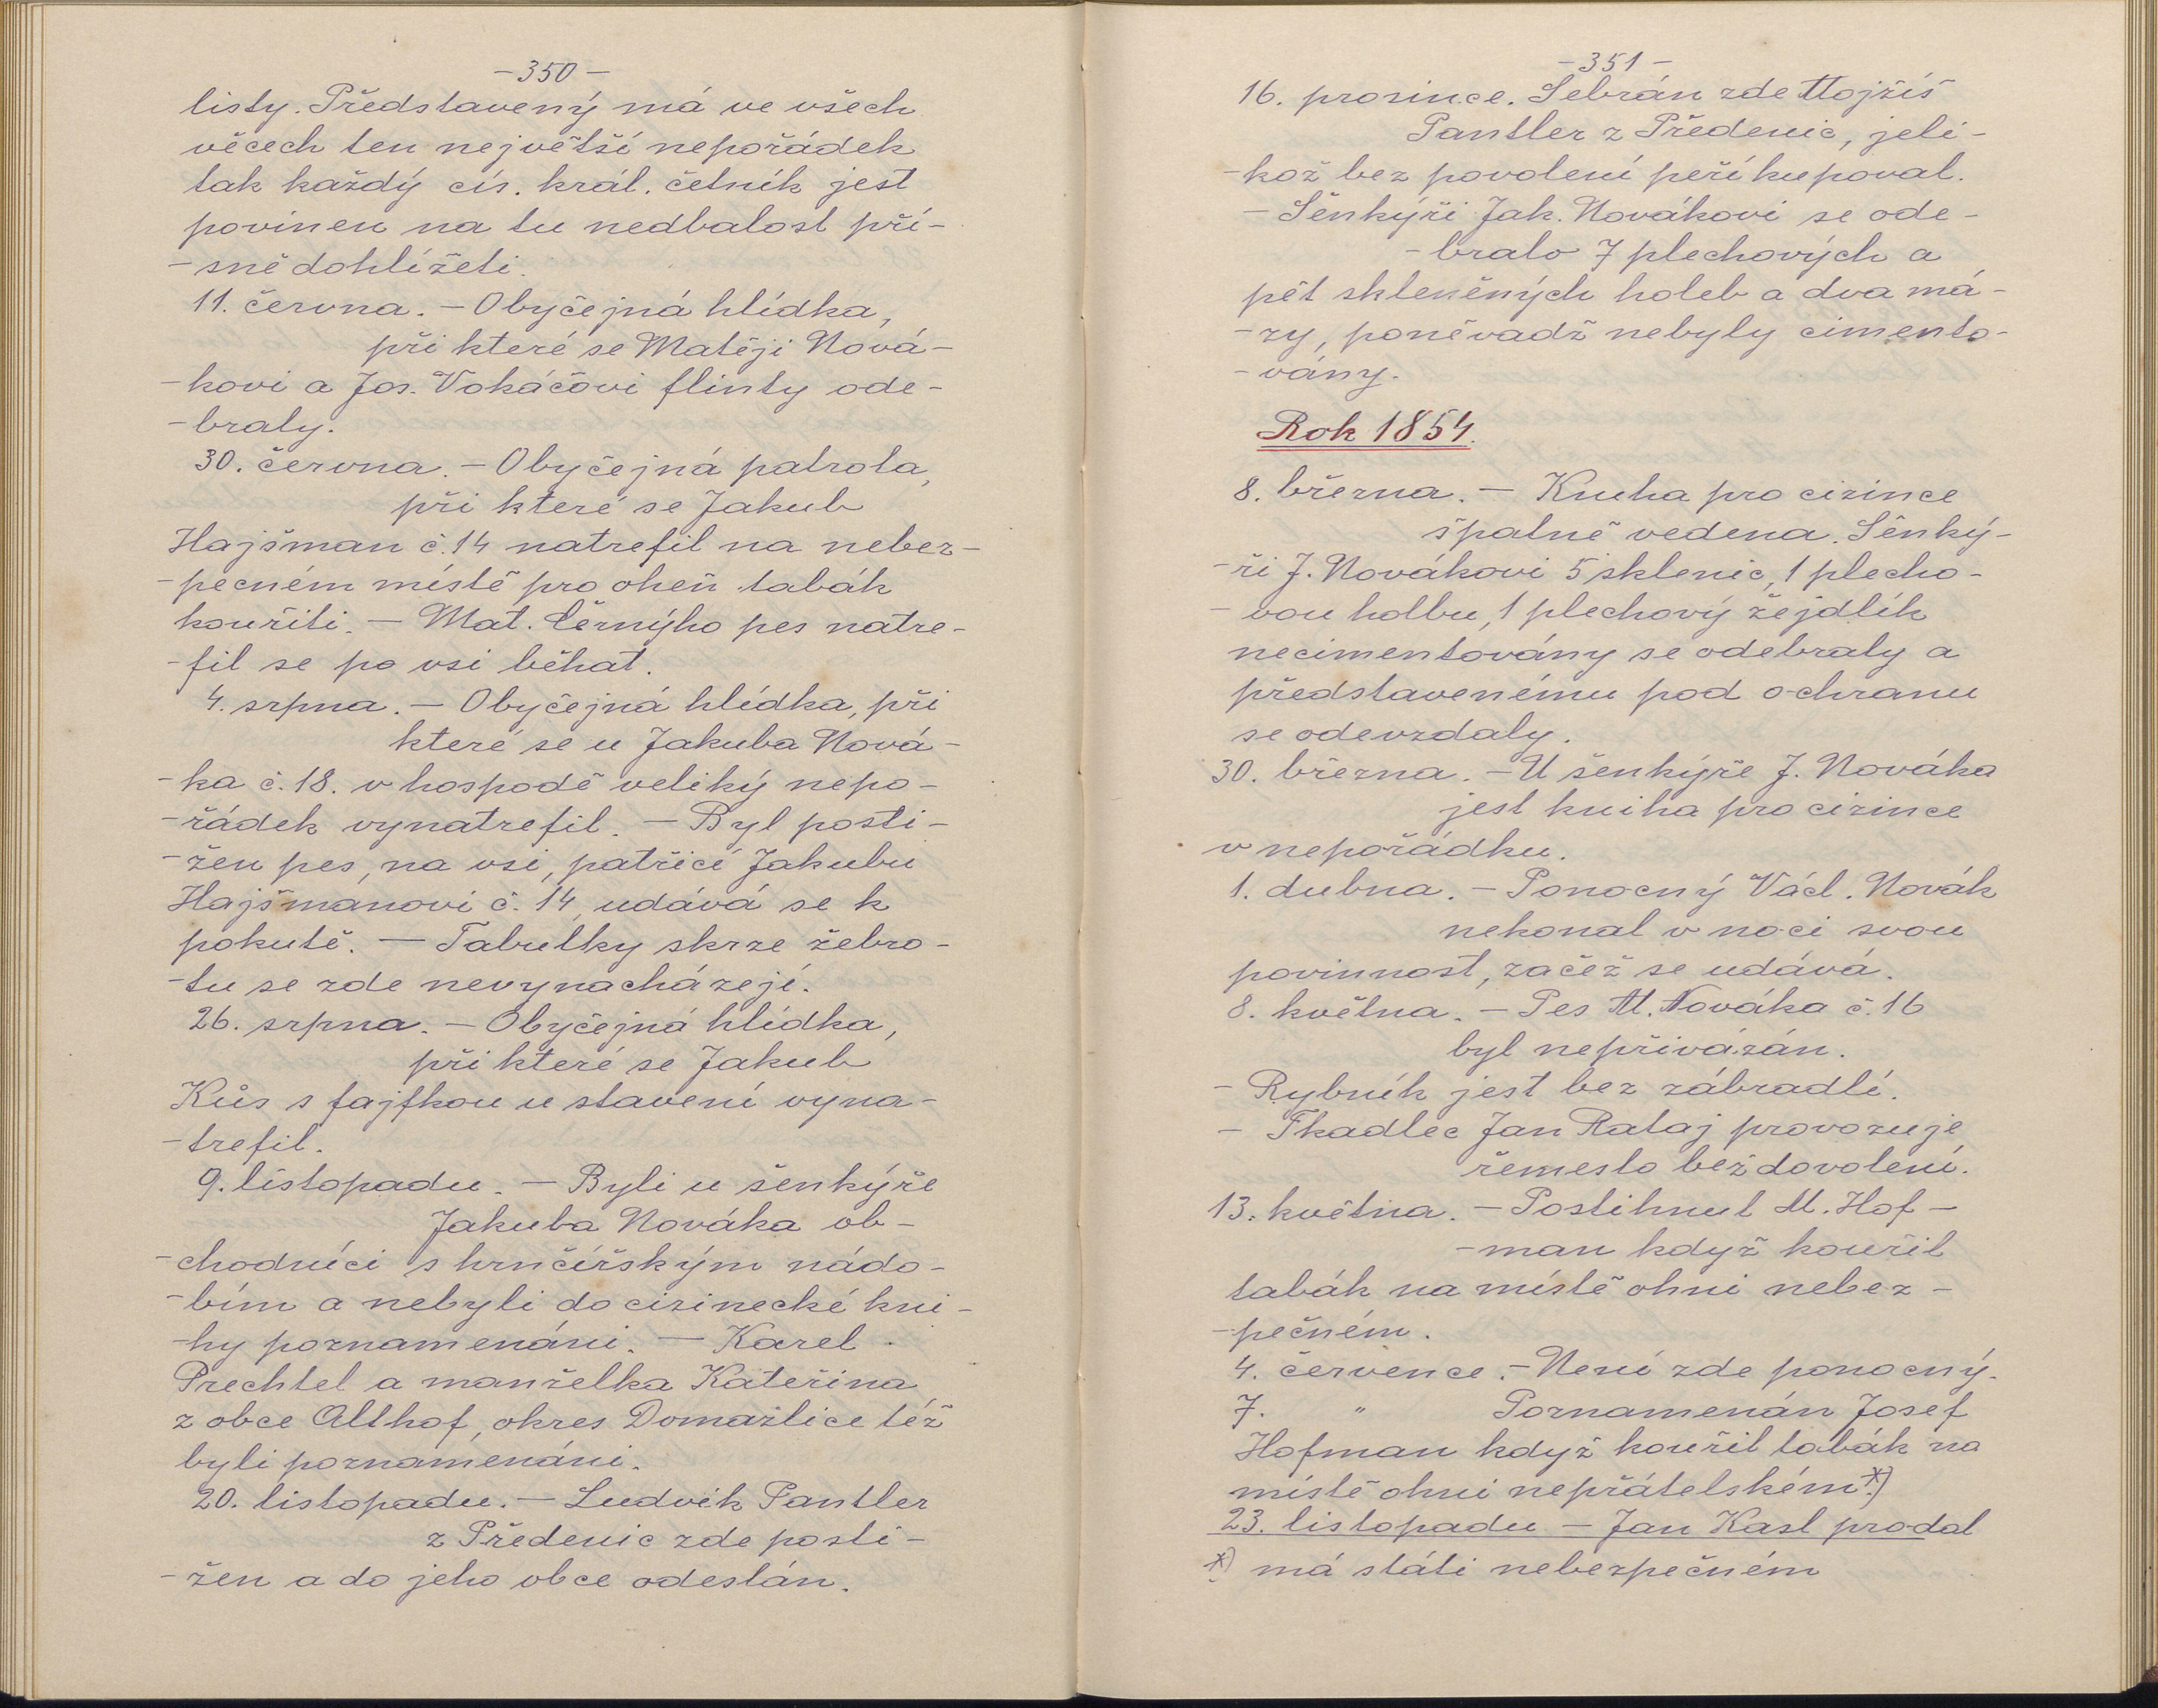 -350-
listy. Představený má ve všech
věcech ten největší nepořádek
tak každý cís. král. četník jest
povinen na tu nedbalost pří-
-sně dohlížeti.
11. června. - Obyčejná hlídka,
při které se Matěji Nová-
-kovi a Jos. Vokáčovi flinty ode-
-braly.
30. června. - Obyčejná patrola,
při které se Jakub
Hajšman č. 14 natrefil na nebez-
-pecném místě pro oheň tabák
kouřiti. - Mat. Černýho pes natre-
-fil se po vsi běhat.
4. srpna. - Obyčejná hlídka, při
které se u Jakuba Nová-
-ka č. 18. v hospodě veliký nepo-
-řádek vynatrefil. - Byl posti-
-žen pes, na vsi, patřící Jakubu
Hajšmanovi č. 14, udává se k
pokutě. - Tabulky skrze žebro-
-tu se zde nevynacházejí.
26. srpna. - Obyčejná hlídka,
při které se Jakub
Kůs s fajfkou u stavení vyna-
-trefil.
9. listopadu. - Byli u šenkýře
Jakuba Nováka ob-
-chodníci s hrnčířským nádo-
-bím a nebyli do cizinecké kni-
-hy poznamenáni. - Karel
Prechtel a manželka Kateřina
z obce Althof, okres Domažlice též
byli poznamenáni.
20. listopadu. - Ludvík Pantler
z Předenic zde posti-
-žen a do jeho obce odeslán.
-351-
16. prosince. Sebrán zde Mojžíš
Pantler z Předenic, jeli-
-kož bez povolení peří kupoval.
- Šénkýři Jak. Novákovi se ode-
-bralo 7 plechových a
pět skleněných holeb a dva má-
-zy, poněvadž nebyly cimento-
-vány.
Rok 1854.
8. března. - Knuha pro cizince
špatně vedena. Šénký-
-ři J. Novákovi 5 sklenic, 1 plecho-
-vou holbu, 1 plechový žejdlík
necimentovány se odebraly a
představenému pod ochranu
se odevzdaly.
30. března. - U šenkýře J. Nováka
jest kniha pro cizince
v nepořádku.
1. dubna. - Ponocný Václ. Novák
nekonal v noci svou
povinnost, začež se udává.
8. května. - Pes M. Nováka č. 16
byl nepřivázán.
- Rybník jest bez zábradlí.
- Tkadlec Jan Rataj provozuje
řemeslo bez dovolení.
13. května. - Postihnut M. Hof-
-man když kouřil
tabák na místě ohni nebez-
-pečném.
4. července. - Není zde ponocný.
7. " Poznamenán Josef
Hofman když kouřil tabák na
místě ohni nepřátelském.*)
23. listopadu - Jan Kasl prodal
*) má státi nebezpečném